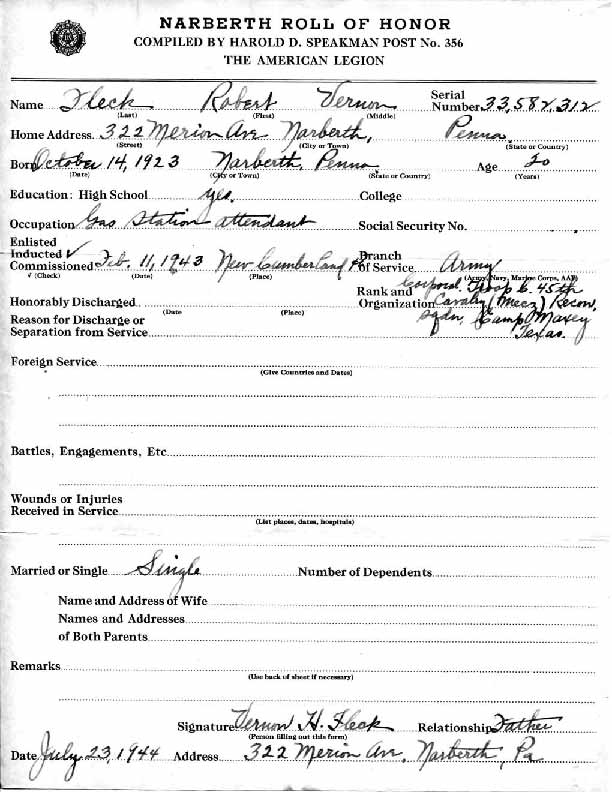 NARBERTH ROLL OF HONOR
COMPILED BY HAROLD D. SPEAKMAN POST No. 356
THE AMERICAN LEGION
Name Fleck Robert Vernon Serial Number 33,582,312
(Last) (First) (Middle)
Home Address 322 Merion Ave Narberth, Penna.
(Street) (City or Town) (State or Country)
Born October 14, 1923 Narberth, Penna Age 20
(Date) (City or Town) (State or Country) (Years)
Education: High School yes. College
Occupation Gas Station attendant Social Security No.
Enlisted
Inducted ✓ Branch
Commissioned Feb. 11, 1943 New Cumberland Pa of Service Army
✓ (Check) (Date) (Place) (Army, Navy, Marine Corps, AAF)
Rank and Corporal Troop C. 45th
Honorably Discharged Organization Cavalry (Mecz) Recon.
(Date (Place)
Reason for Discharge or Sqdn, Camp Maxey
Separation from Service Texas.
Foreign Service
(Give Countries and Dates)
Battles, Engagements, Etc
Wounds or Injuries
Received in Service
(List places, dates, hospitals)
Married or Single Single Number of Dependents
Name and Address of Wife
Names and Addresses
of Both Parents
Remarks
(Use back of sheet if necessary)
Signature Vernon H. Fleck Relationship Father
(Person filling out this form)
Date July 23, 1944 Address 322 Merion Ave, Narberth, Pa